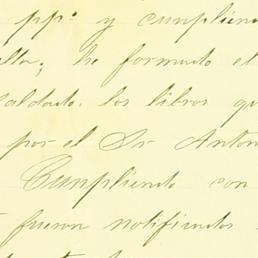 ppº y cumpliend
ella; he formado el
saldado los libros qu
por el Sr Anton
Cumpliendo con
fueron notificados